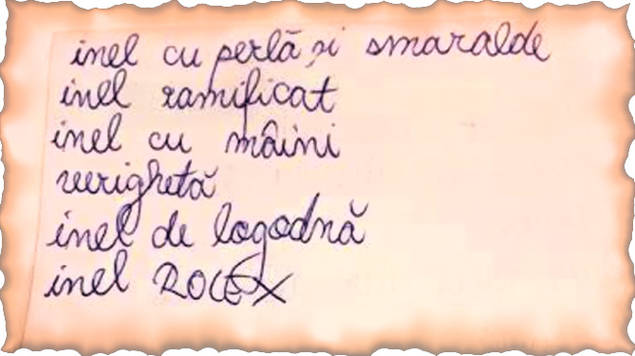 inel cu perlă și smaralde
inel ramificat
inel cu mâini
verighetă
inel de logodnă
inel ROLEX